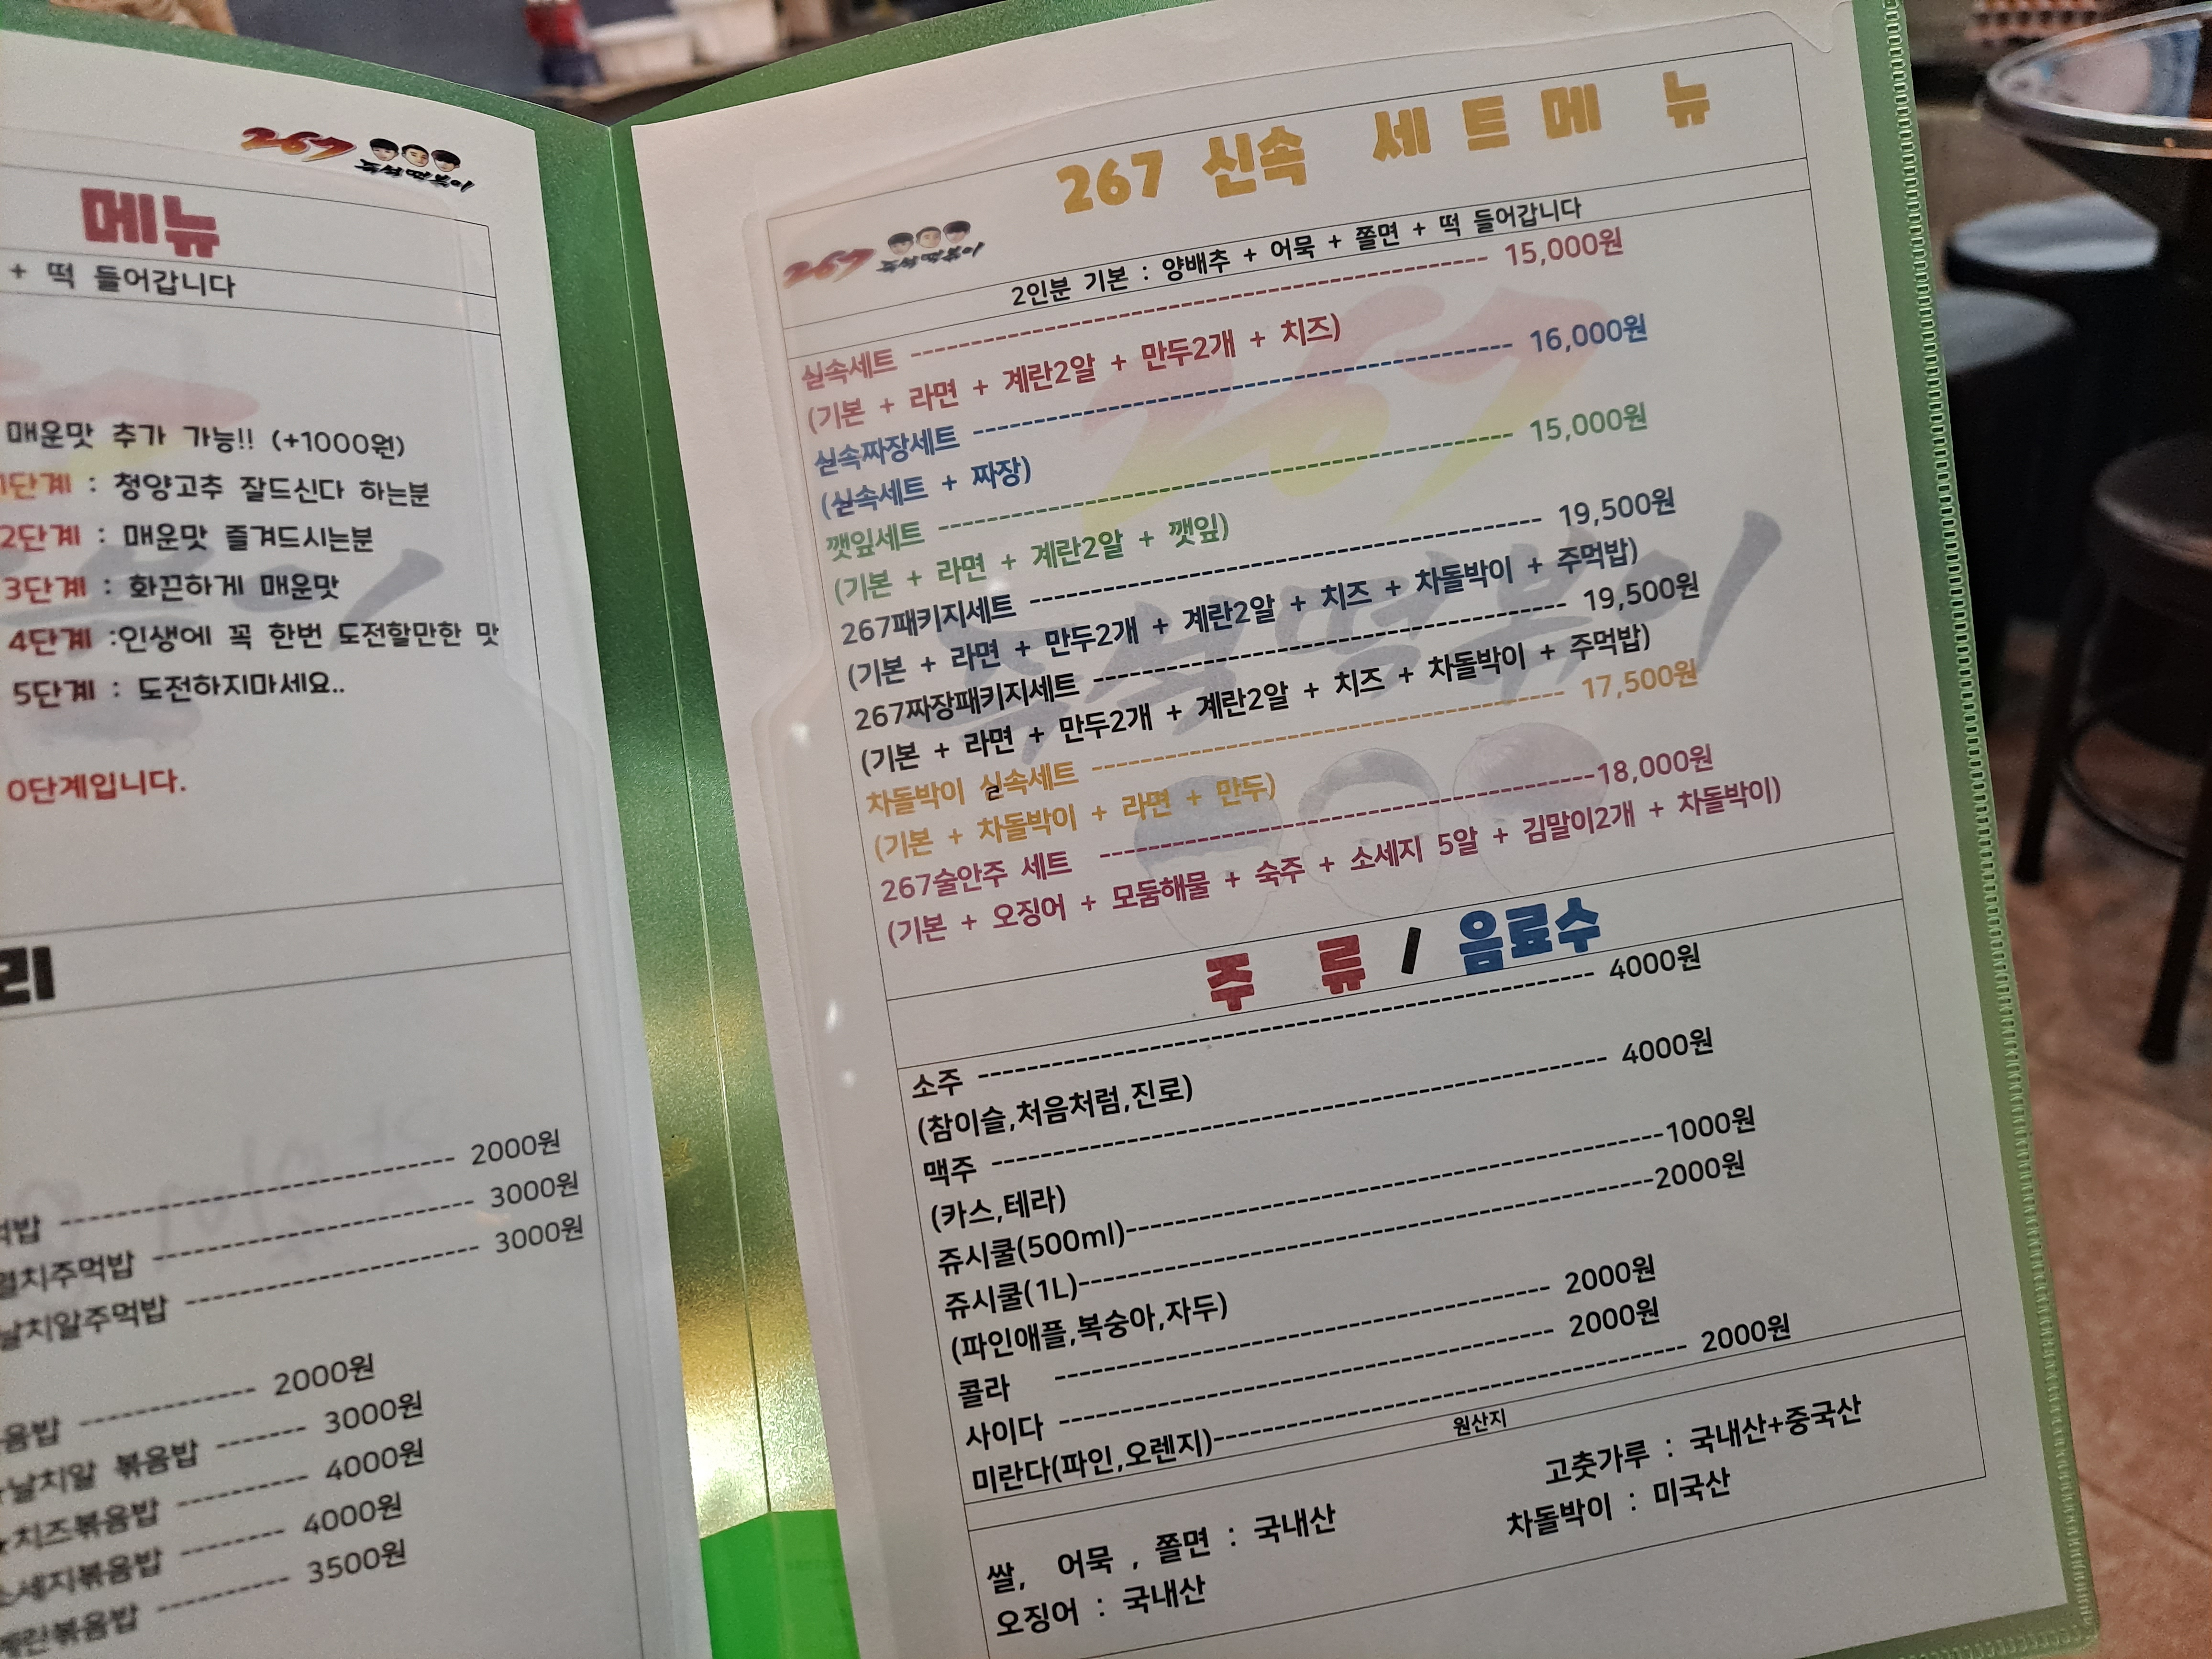 267
즉석떡볶이
메뉴
+ 떡 들어갑니다
매운맛 추가 가능!! (+1000원)
1단계 : 청양고추 잘드신다 하는분
2단계 : 매운맛 즐겨드시는분
3단계 : 화끈하게 매운맛
4단계 :인생에 꼭 한번 도전할만한 맛
5단계 : 도전하지마세요..
0단계입니다.
리
2000원
멸치주먹밥 ---------- 3000원
날치알주먹밥 ---------- 3000원
2000원
날치알 볶음밥 ------- 3000원
치즈볶음밥 ---------- 4000원
소세지볶음밥 -------- 4000원
계란볶음밥 ---------- 3500원
267 신속 세트메 뉴
267
즉석떡볶이
2인분 기본 : 양배추 + 어묵 + 쫄면 + 떡 들어갑니다
실속세트 ---------- 15,000원
(기본 + 라면 + 계란2알 + 만두2개 + 치즈)
실속짜장세트 ---------- 16,000원
(실속세트 + 짜장)
깻잎세트 ---------- 15,000원
(기본 + 라면 + 계란2알 + 깻잎)
267패키지세트 ---------- 19,500원
(기본 + 라면 + 만두2개 + 계란2알 + 치즈 + 차돌박이 + 주먹밥)
267짜장패키지세트 ---------- 19,500원
(기본 + 라면 + 만두2개 + 계란2알 + 치즈 + 차돌박이 + 주먹밥)
차돌박이 실속세트 ---------- 17,500원
(기본 + 차돌박이 + 라면 + 만두)
267술안주 세트 ----------18,000원
(기본 + 오징어 + 모둠해물 + 숙주 + 소세지 5알 + 김말이2개 + 차돌박이)
주 류 / 음료수
소주 ---------- 4000원
(참이슬,처음처럼,진로)
맥주 ---------- 4000원
(카스,테라)
쥬시쿨(500ml)----------1000원
쥬시쿨(1L)----------2000원
(파인애플,복숭아,자두)
콜라 ---------- 2000원
사이다 ---------- 2000원
미란다(파인,오렌지)---------- 2000원
원산지
쌀, 어묵 , 쫄면 : 국내산 고춧가루 : 국내산+중국산
오징어 : 국내산 차돌박이 : 미국산